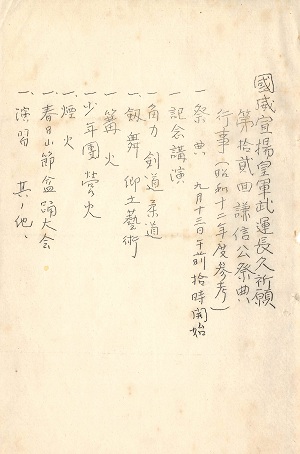 國威宣揚皇軍武運長久祈願
第拾貮回謙信公祭典
行事(昭和十二年度参考)
一、祭典 九月十三日午前拾時開始
一、記念講演
一、角力 剣道 柔道
一、劔舞 郷土藝術
一、篝火
一、少年團営火
一、煙火
一、春日山節盆踊大会
一、演習 其ノ他、